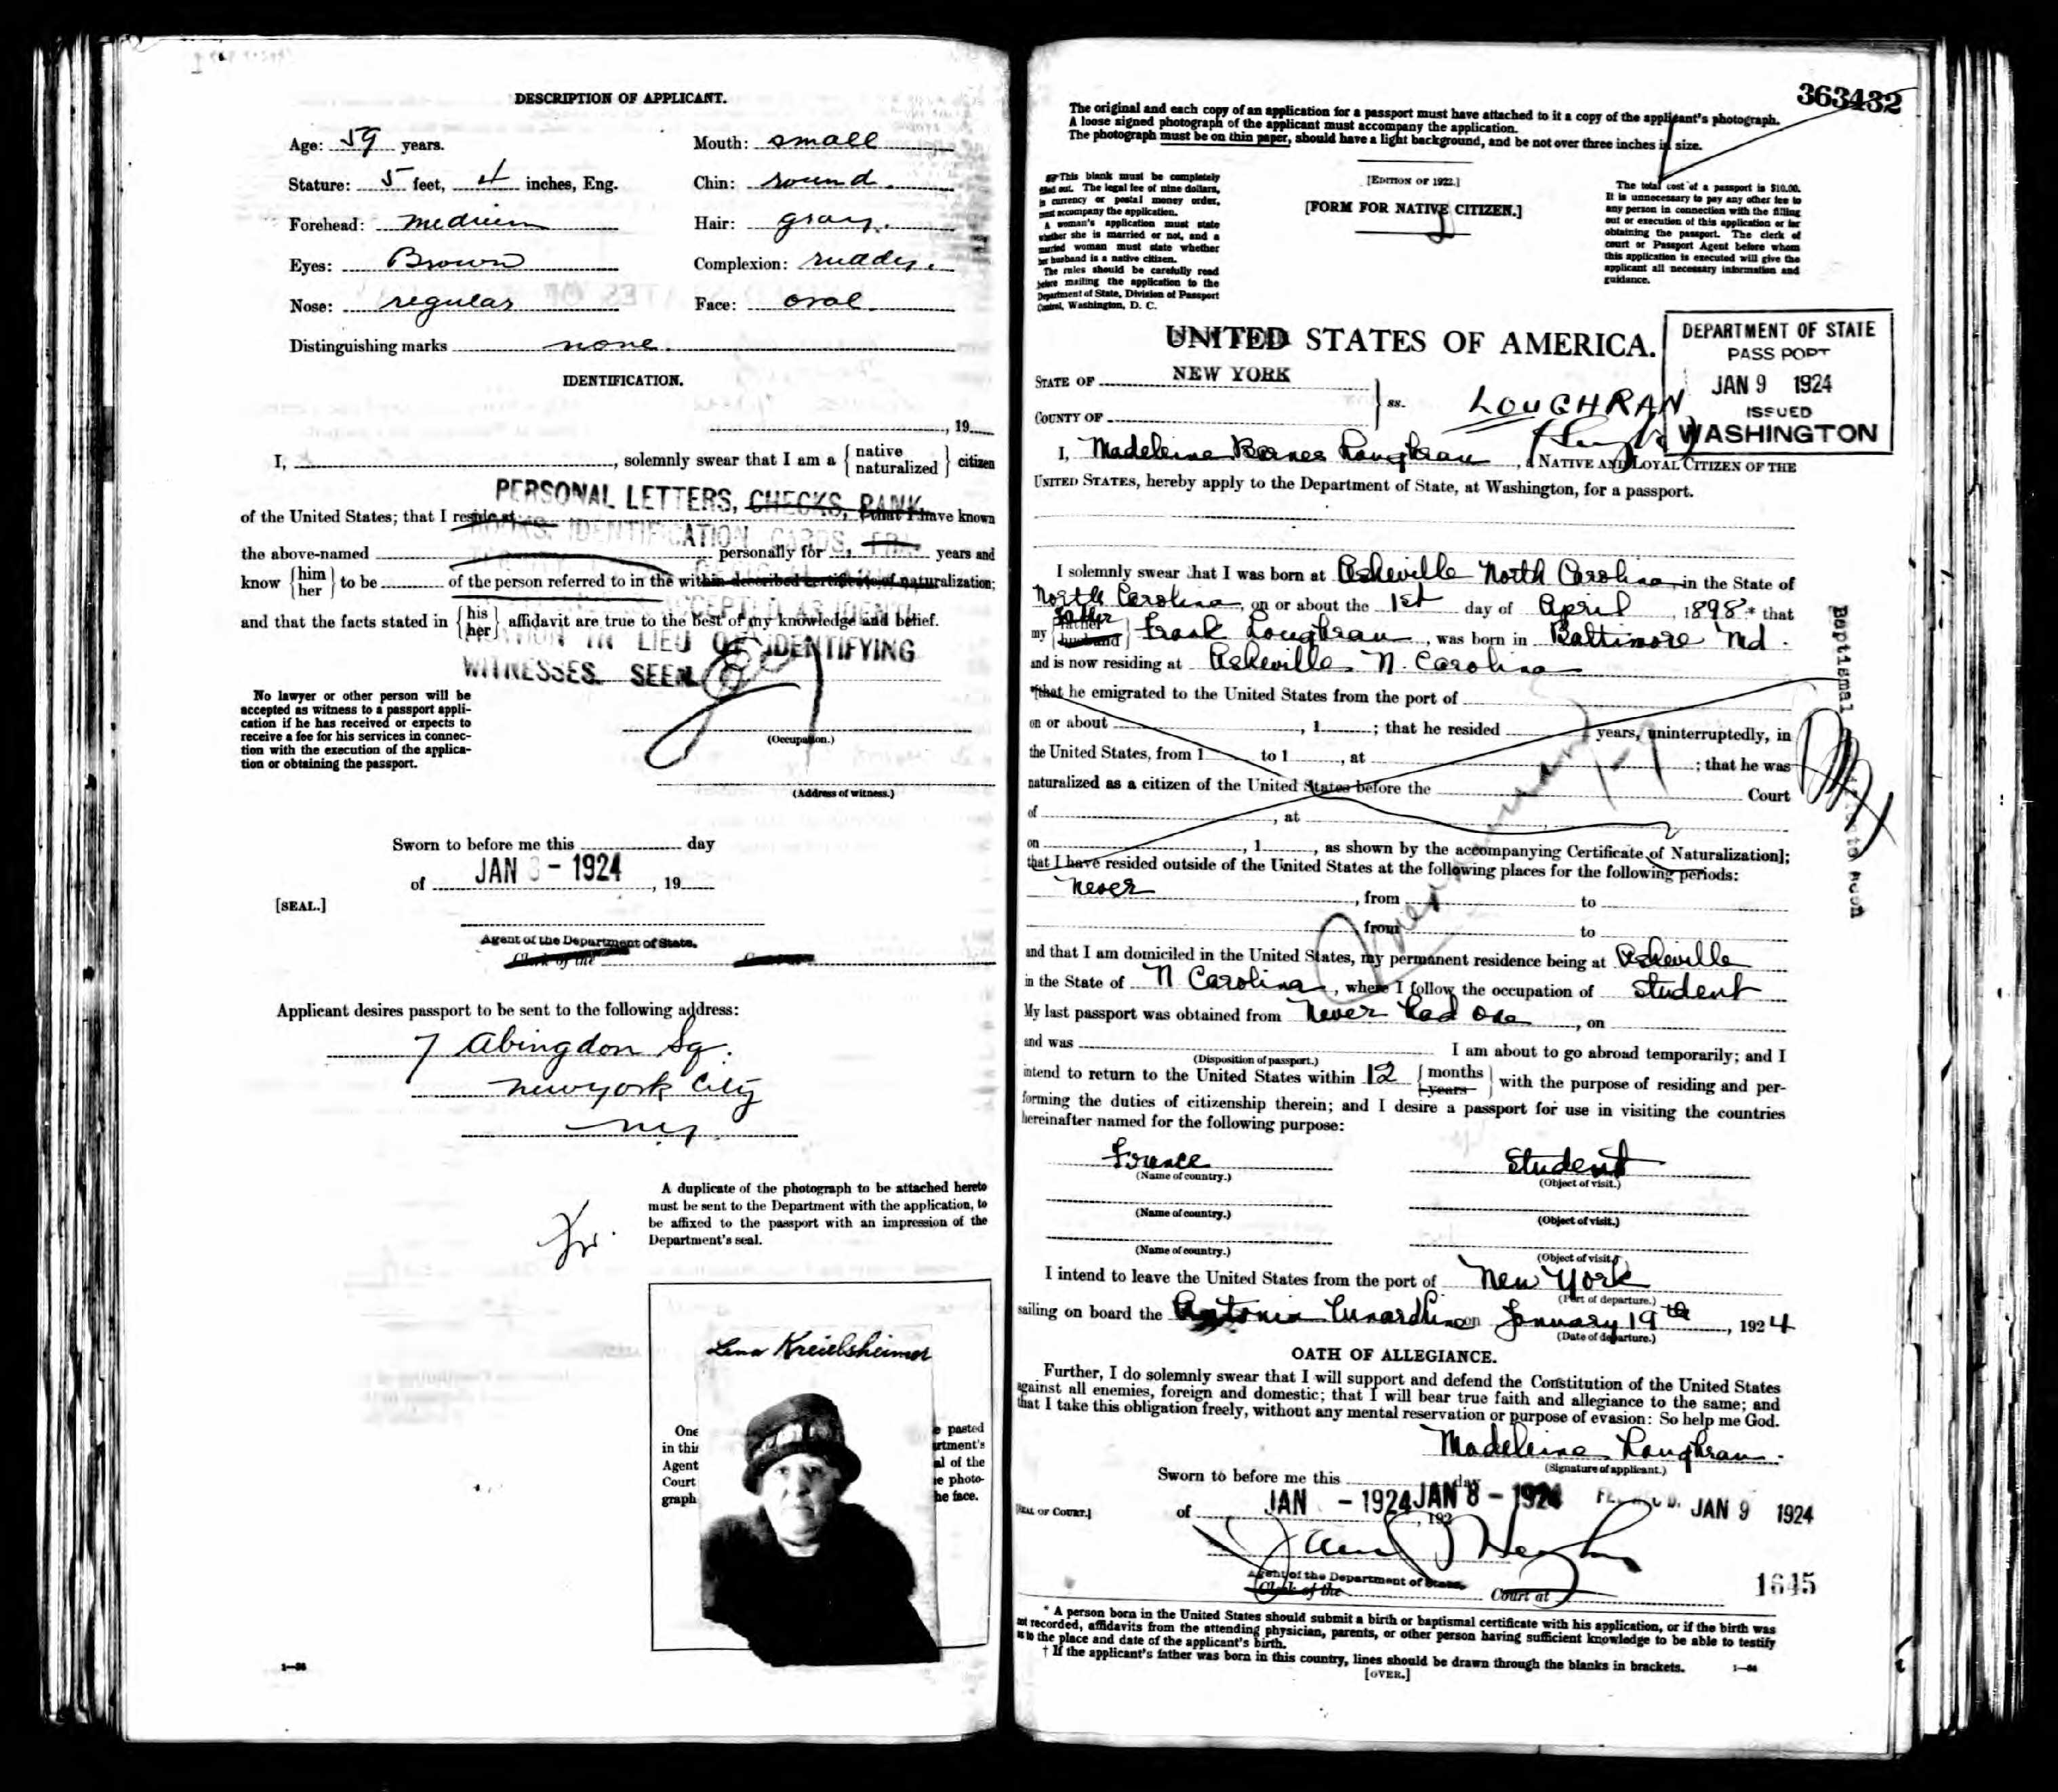 DESCRIPTION OF APPLICANT.
Age: 59 years.
Mouth: small
Stature: 5 feet, 4 inches, Eng.
Chin: round.
Forehead: medium
Hair: gray.
Eyes: Brown
Complexion: ruddy.
Nose: regular
Face: oval.
Distinguishing marks none.
IDENTIFICATION.
, 19
I, , solemnly swear that I am a { native naturalized } citizen
PERSONAL LETTERS, CHECKS, BANK
of the United States; that I reside at ; that I have known
IDENTIFICATION CARDS,
the above-named personally for years and
know { him her } to be of the person referred to in the within-described certificate of naturalization;
ACCEPTED AS IDENTI
and that the facts stated in { his her } affidavit are true to the best of my knowledge and belief.
IN LIEU OF IDENTIFYING
WITNESSES. SEEN
No lawyer or other person will be
accepted as witness to a passport appli-
cation if he has received or expects to
receive a fee for his services in connec-
tion with the execution of the applica-
tion or obtaining the passport.
(Occupation.)
(Address of witness.)
Sworn to before me this day
of JAN - 1924 , 19
[SEAL.]
Agent of the Department of State.
Clerk of the
Applicant desires passport to be sent to the following address:
7 Abingdon Sq.
New York City
N.Y.
A duplicate of the photograph to be attached hereto
must be sent to the Department with the application, to
be affixed to the passport with an impression of the
Department's seal.
Lena Kreielsheimer
One pasted
in this rtment's
Agent al of the
Court e photo-
graph he face.
363432
The original and each copy of an application for a passport must have attached to it a copy of the applicant's photograph.
A loose signed photograph of the applicant must accompany the application.
The photograph must be on thin paper, should have a light background, and be not over three inches in size.
This blank must be completely
filled out. The legal fee of nine dollars,
in currency or postal money order,
must accompany the application.
A woman's application must state
whether she is married or not, and a
married woman must state whether
her husband is a native citizen.
The rules should be carefully read
before mailing the application to the
Department of State, Division of Passport
Control, Washington, D. C.
[EDITION OF 1922.]
[FORM FOR NATIVE CITIZEN.]
The total cost of a passport is $10.00.
It is unnecessary to pay any other fee to
any person in connection with the filling
out or execution of this application or for
obtaining the passport. The clerk of
court or Passport Agent before whom
this application is executed will give the
applicant all necessary information and
guidance.
UNITED STATES OF AMERICA.
DEPARTMENT OF STATE
PASSPORT
JAN 9 1924
ISSUED
WASHINGTON
STATE OF NEW YORK
COUNTY OF
ss.
LOUGHRAN
I, Madeleine Barnes Loughran, a NATIVE AND LOYAL CITIZEN OF THE
UNITED STATES, hereby apply to the Department of State, at Washington, for a passport.
I solemnly swear that I was born at Asheville North Carolina, in the State of
North Carolina, on or about the 1st day of April, 1898* that
my { father husband } father Frank Loughran, was born in Baltimore Md.
and is now residing at Asheville N. Carolina
*[that he emigrated to the United States from the port of
on or about , 1 ; that he resided years, uninterruptedly, in
the United States, from 1 to 1 , at ; that he was
naturalized as a citizen of the United States before the Court
of , at
on , 1 , as shown by the accompanying Certificate of Naturalization];
that I have resided outside of the United States at the following places for the following periods:
never , from to
from to
and that I am domiciled in the United States, my permanent residence being at Asheville
in the State of N Carolina, where I follow the occupation of student
My last passport was obtained from Never had one , on
and was (Disposition of passport.) I am about to go abroad temporarily; and I
intend to return to the United States within 12 { months years } with the purpose of residing and per-
forming the duties of citizenship therein; and I desire a passport for use in visiting the countries
hereinafter named for the following purpose:
France student
(Name of country.) (Object of visit.)
(Name of country.) (Object of visit.)
(Name of country.) (Object of visit.)
I intend to leave the United States from the port of New York
(Port of departure.)
sailing on board the Antonia Cunard Line on January 19th, 1924
(Date of departure.)
OATH OF ALLEGIANCE.
Further, I do solemnly swear that I will support and defend the Constitution of the United States
against all enemies, foreign and domestic; that I will bear true faith and allegiance to the same; and
that I take this obligation freely, without any mental reservation or purpose of evasion: So help me God.
Madeleine Loughran.
(Signature of applicant.)
Sworn to before me this day
[SEAL OF COURT.] of JAN - 1924 JAN 8 - 1924 , 192 JAN 9 1924
Agent of the Department of State.
Clerk of the Court at
1645
* A person born in the United States should submit a birth or baptismal certificate with his application, or if the birth was
not recorded, affidavits from the attending physician, parents, or other person having sufficient knowledge to be able to testify
as to the place and date of the applicant's birth.
† If the applicant's father was born in this country, lines should be drawn through the blanks in brackets.
[OVER.]
Baptismal